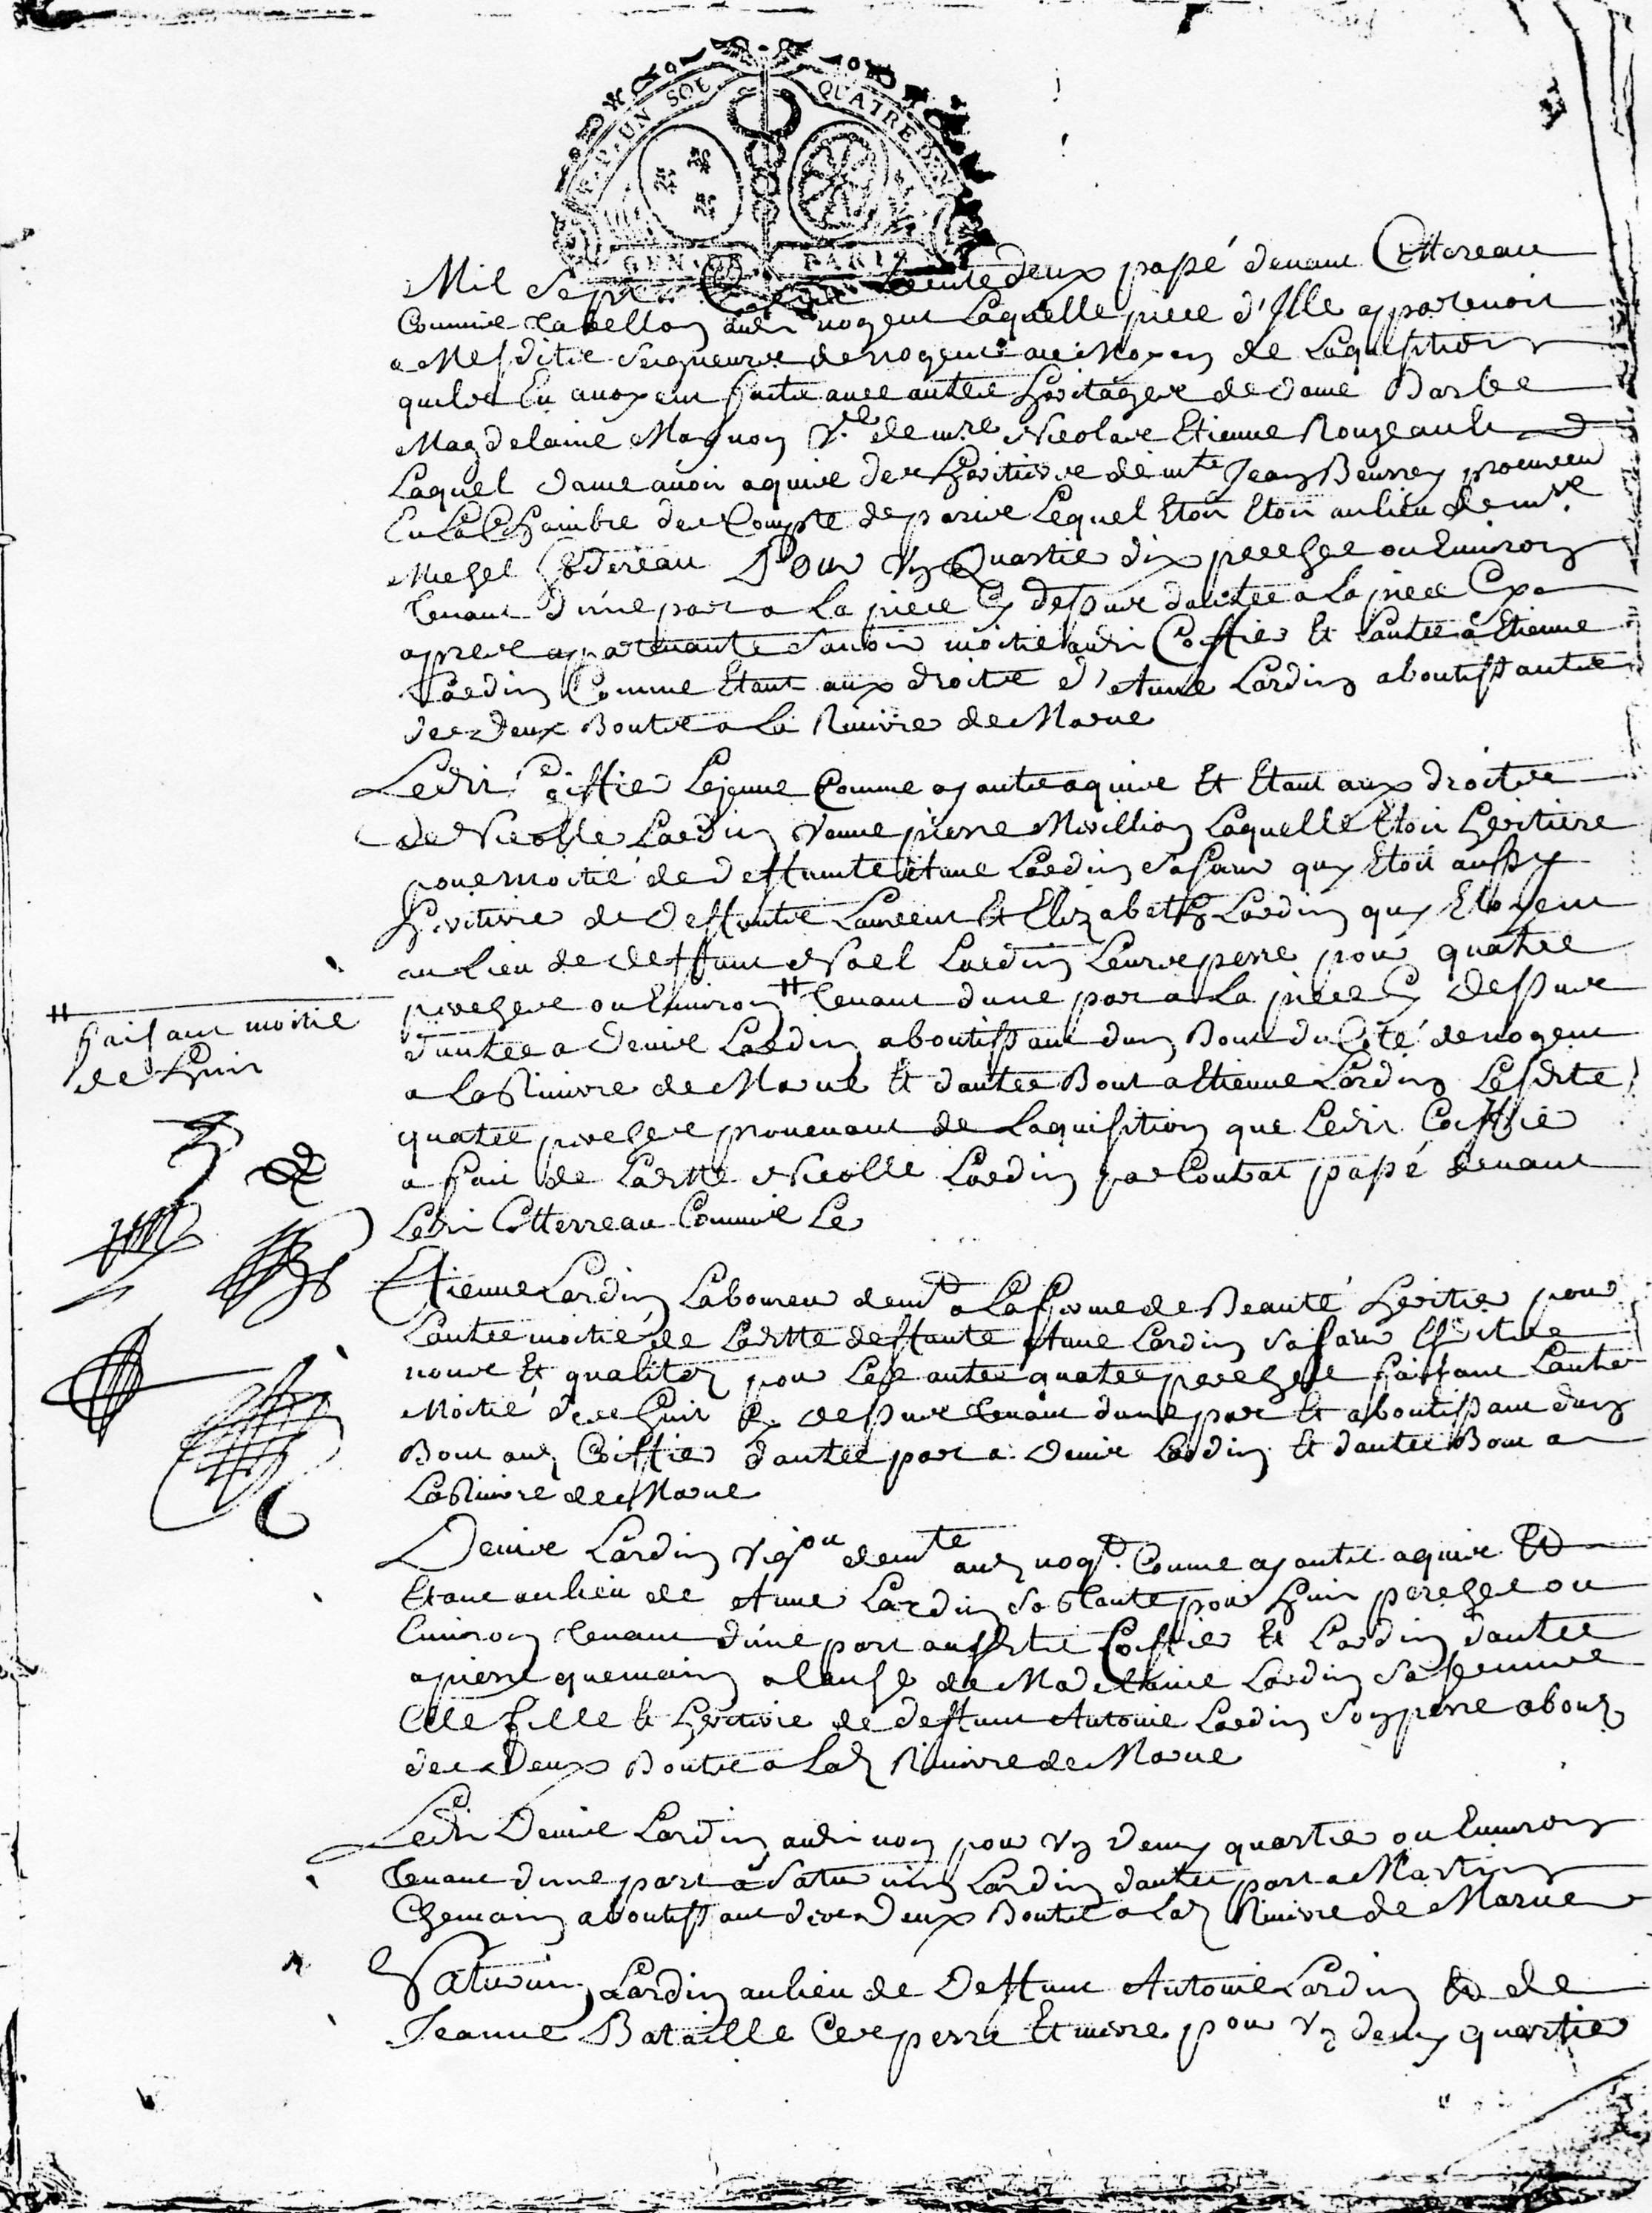 UN SOL QUATRE DEN
GEN DE PARIS
Mil Sept Cent trente deux passé devant Cottereau
Commis tabellon audit nogent Laquelle piece d'Isle appartenoit
a Mesdits Seigneurs de nogent au Moyen de Laquisition
quils En avoyent faite avec autres heritages de dame Barbe
Magdelaine Magnon Ve de mre Nicolas Etienne Rougeault
Laquel dame avoit aquis des heritiers de mte Jean Beurrey procureur
En La Chambre des Compte de paris Lequel Etoit Etoit au lieu de mre
Michel Godereau Pour Un Quartie dix perches ou Environ
tenant d'une par a La piece Cy dessus dautre a La piece Cy
apres appartenante Savoir moitie audit Coiffier Et Lautre a Etienne
Lardin Comme Etant aux droits d'Anne Lardin aboutissantte
des deux Bouts a La Riviere de Marne
Ledit Coiffier Lejeune Comme ayantt aquis Et Etant aux droits
de Nicolle Lardin veuve pierre Mivillion Laquelle Etoit heritiere
pour moitié de deffunte Anne Lardin Sa sœur quy Etoit aussy
heritiere de deffunts Laurent Et Elizabeth Lardin quy Etoyent
au Lieu de deffunt Noel Lardin Leurs perre pour quatre
perches ou Environ # tenant dune par a La piece Cy dessus
dautre a Denis Lardin aboutissant dun Bout du Coté de nogent
a La Riviere de Marne Et dautre Bout a Etienne Lardin Lesdits
quatre perches provenant de Laquisition que Ledit Coiffie
a fait de Laditte Nicolle Lardin par Contrat passé devant
Ledit Cotterreau Commis Le
# faisant moitie
de huit
Etienne Lardin Laboureur demt a La ferme de Beauté heritier pour
Lautre moitié de Laditte deffunte Anne Lardin Sa sœur Esdits
noms Et qualitez pour Les autres quatre perches faisant Lautre
Moitié des huit Cy dessus tenant dune par Et aboutissant dun
Bout aud Coiffier dautre par a Denis Lardin Et dautre Bout a
La Riviere de Marne
Denis Lardin vigon demte aud nogt Comme ayantt aquis Et
Etant au lieu de Anne Lardin Sa tante pour huit perches ou
Environ tenant d'une part ausdits Coiffier Et Lardin dautre
a pierre quemain a cause de Madelaine Lardin Sa femme
Elle fille Et heritiere de deffunt Antoine Lardin Son perre about
des deux Bouts a Lad Riviere de Marne
Ledit Denis Lardin audit nom pour Un demy quartie ou Environ
tenant d'une part a Saturnin Lardin dautre part a Martin
Chemain aboutissant des deux Bouts a Lad Riviere de Marne
Saturnin Lardin au lieu de Deffunt Antoine Lardin Et de
Jeanne Bataille Ces perre Et mere pour Un demy quartie